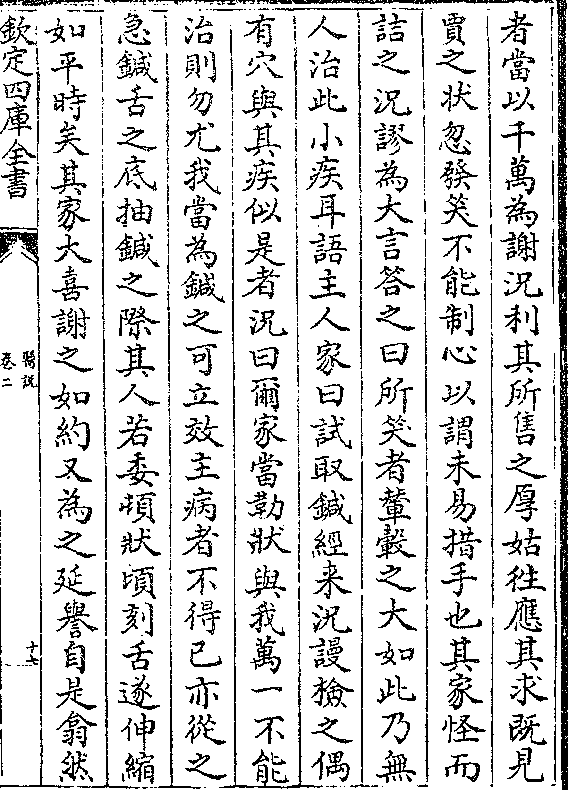 者當以千萬為謝況利其所售之厚姑徃應其求既見
賈之状忽發笑不能制心以謂未易措手也其家怪而
詰之況謬為大言答之曰所笑者輦轂之大如此乃無
人治此小疾耳語主人家曰試取鍼經来況謾檢之偶
有穴與其疾似是者況曰爾家當勒狀與我萬一不能
治則勿尤我當為鍼之可立效主病者不得已亦從之
急鍼舌之底抽鍼之際其人若委頓狀頃刻舌遂伸縮
如平時矣其家大喜謝之如約又為之延譽自是翕然
欽定四庫全書
醫説
卷二
十七